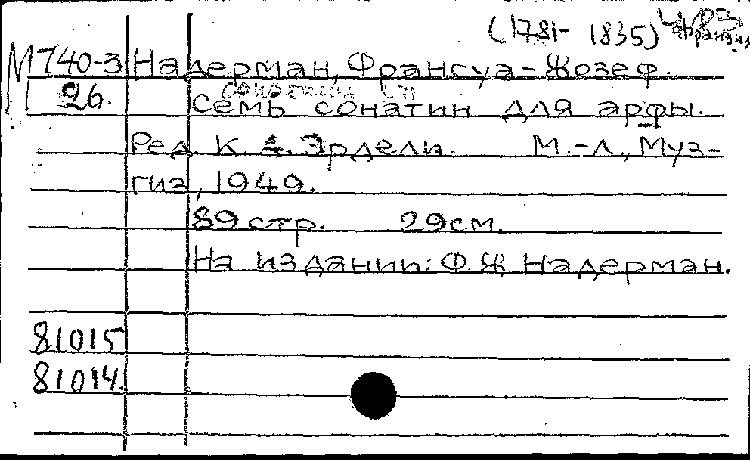 (1781- 1835)
М 740-3 Надерман, Франсуа-Жозеф.
26. Семь сонатин для арфы.
Ред. К. Эрдели. М.-Л., Муз-
гиз, 1949.
89 стр. 29 см.
На издании: Ф.Ж. Надерман.
81015
81014.